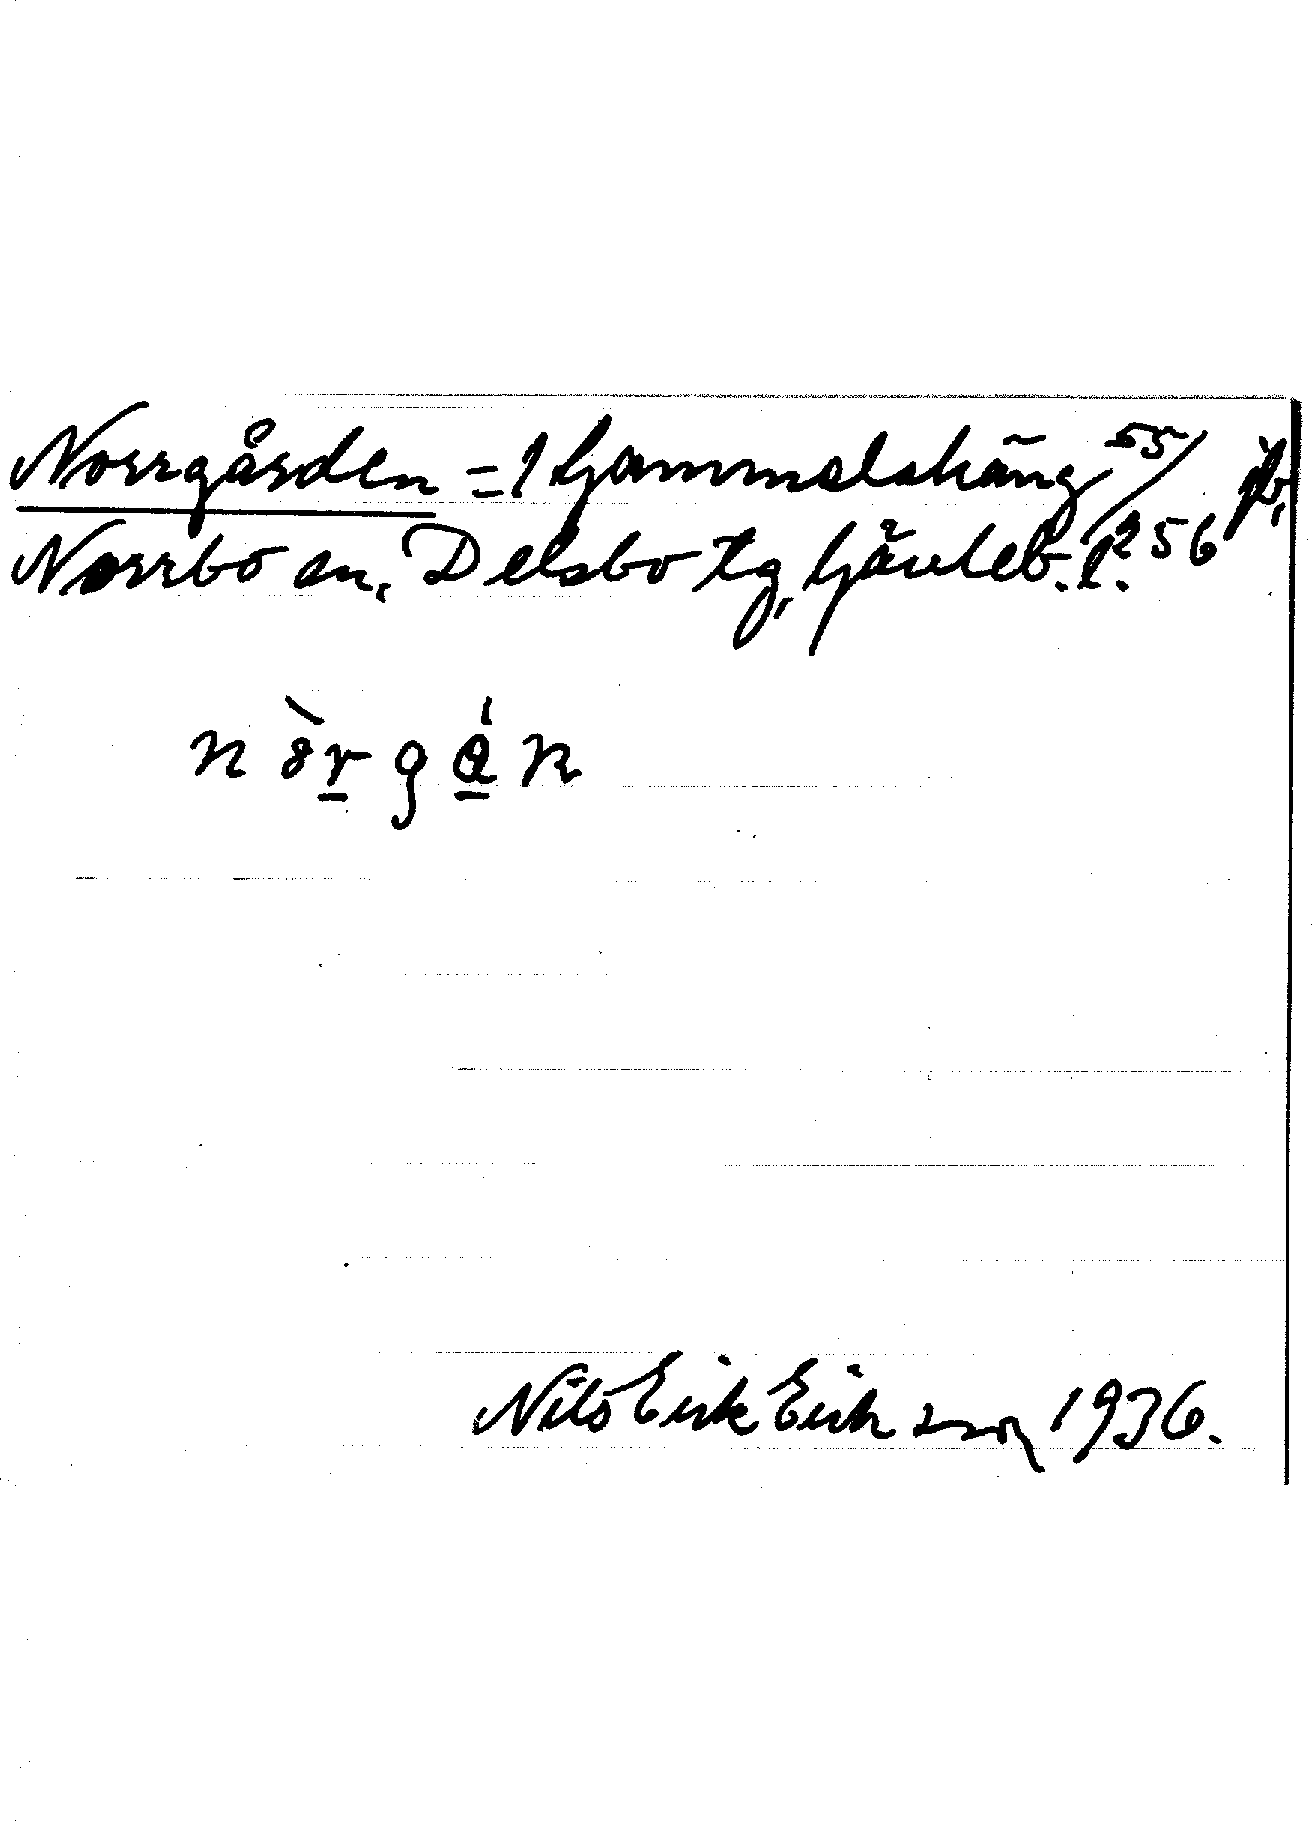 Norrgården = 1 Gammelskäng 55/256 jb.
Norrbo sn. Delsbo tg, Gävleb. l.
nòrgán
Nils Erik Eriksson 1936.